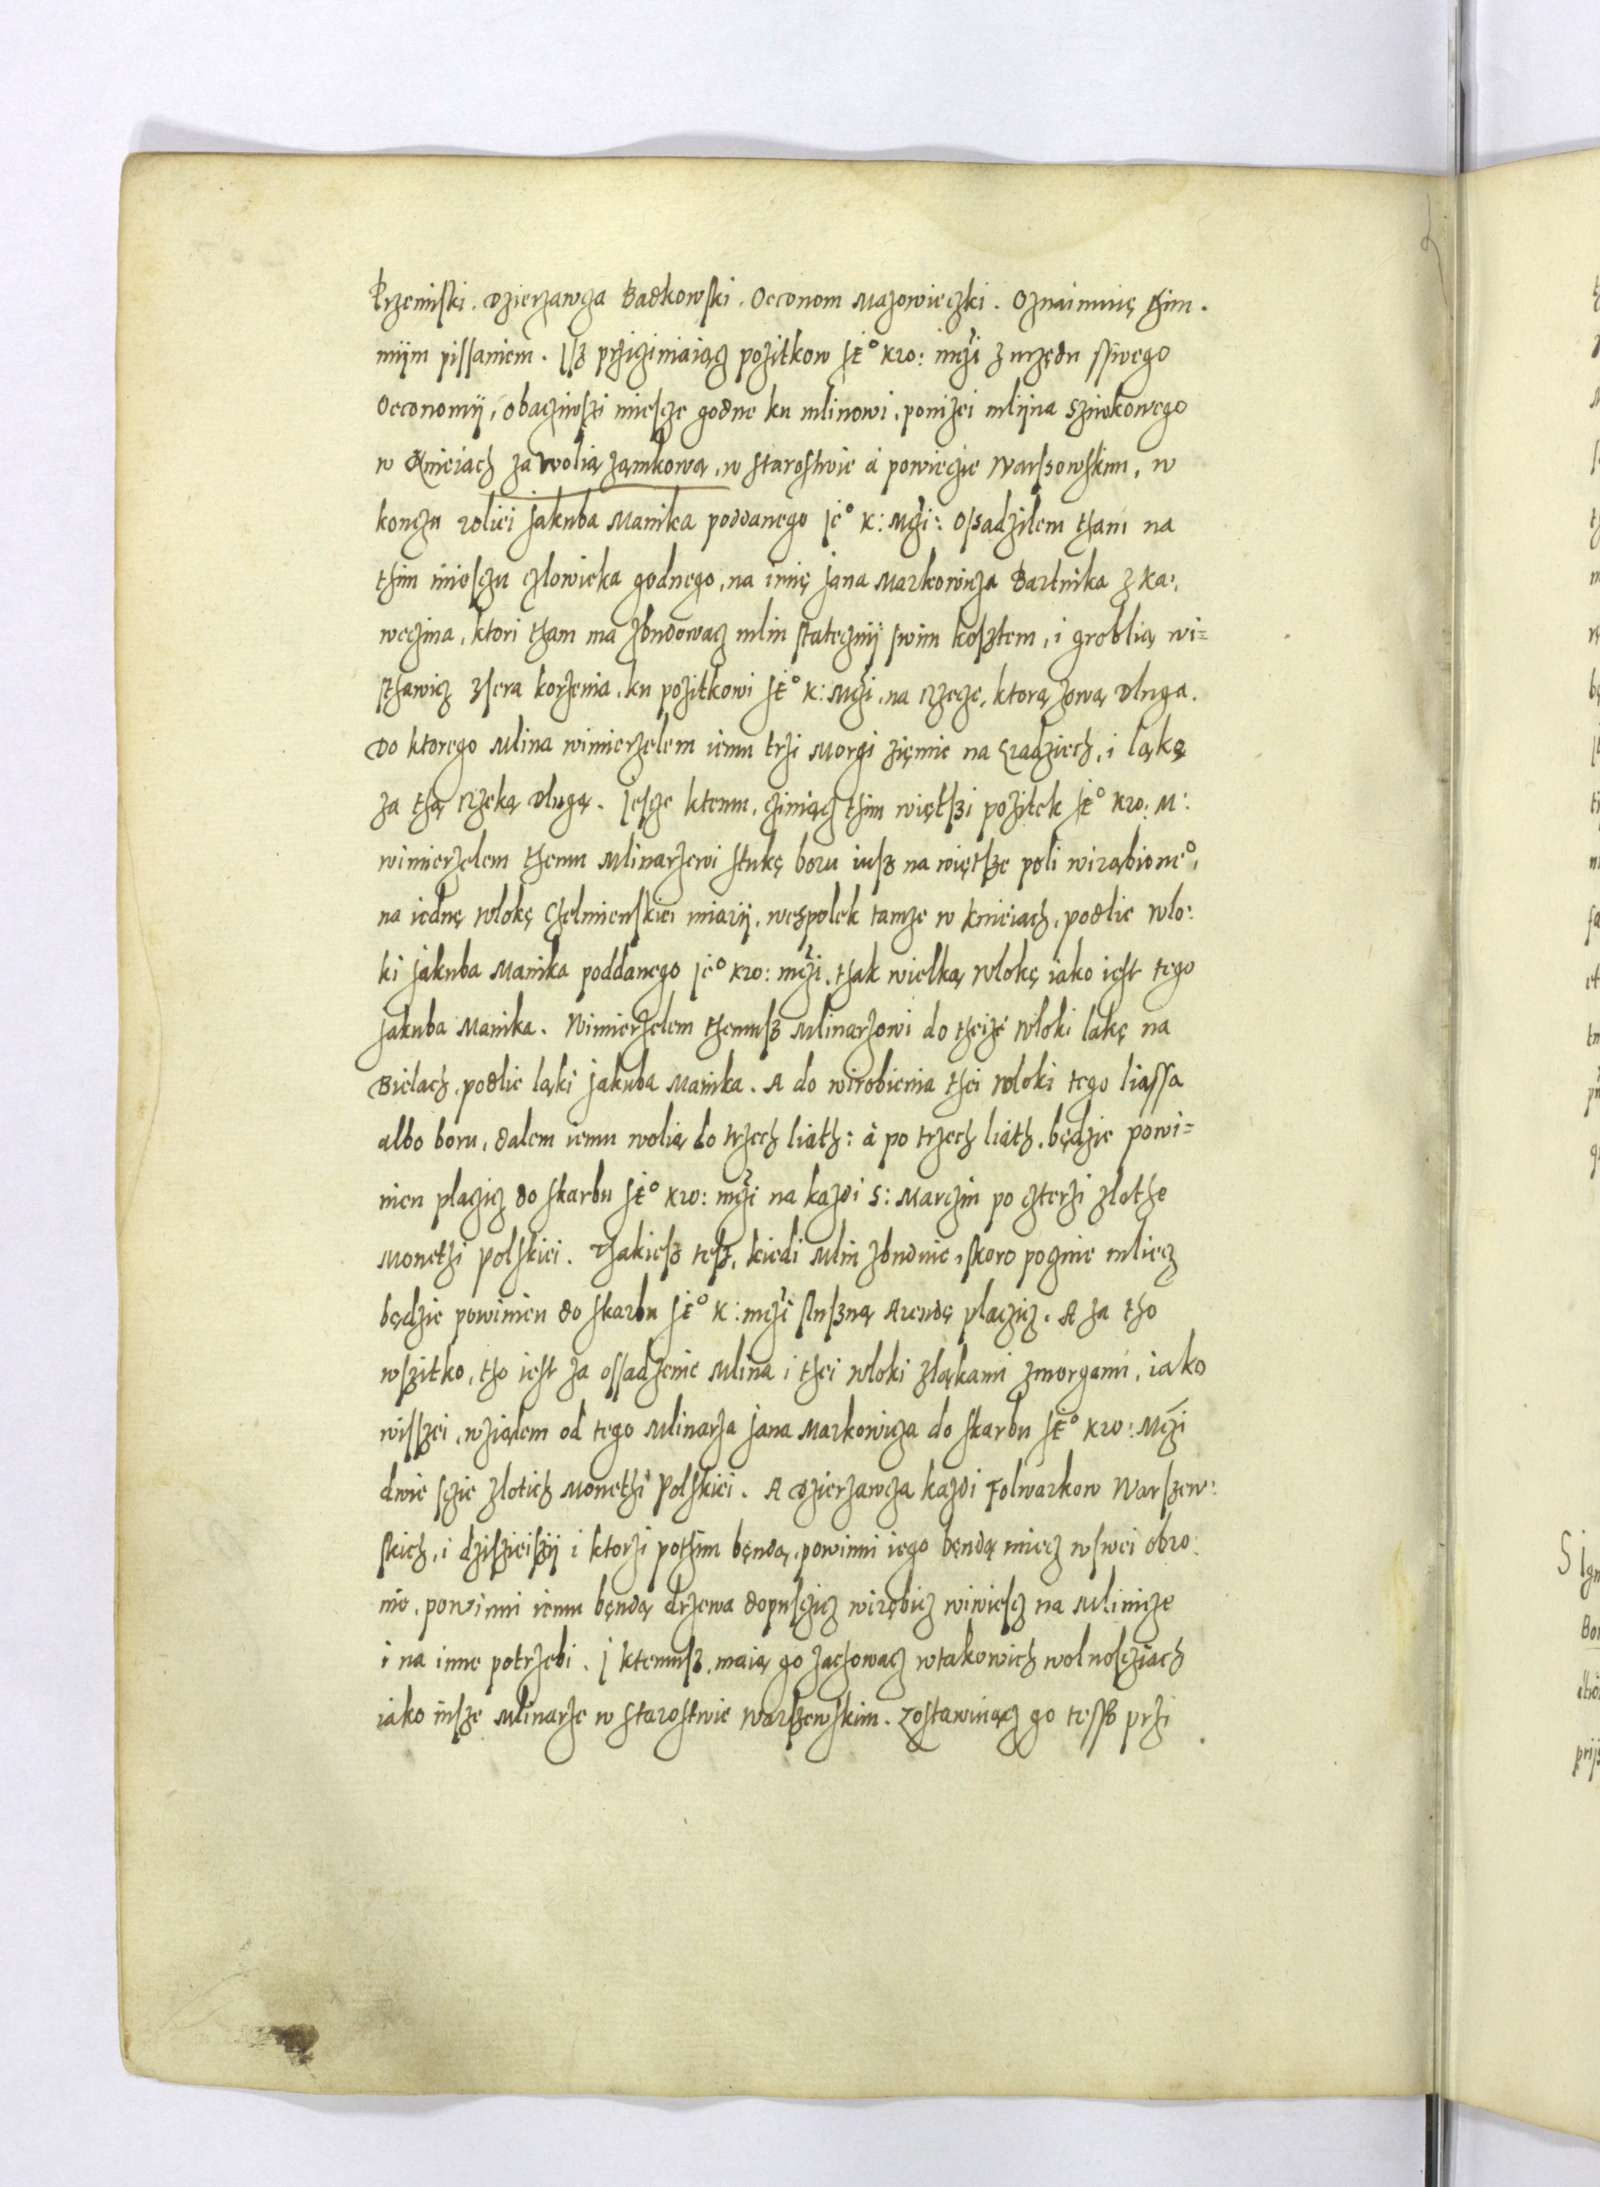 Krzeminski. Dzierzawcza Badkowski. Oeconom Mazowieczki. Oznaimuię tym.
mijm pissaniem. Isz przicziniaiącz pożitkow JE° Kro: mczi z urzędu sswego
Oeconomij, obacziwszi miescze godne ku mlinowi, poniżei mlijna Szniokowego
w Knieiach za Wolią Zamkową, w starostwie á powieczie Warszowskim, w
konczu roliei Jakuba Manika poddanego Je° K: Mczi: Osadzilem tham na
thim miesczu człowieka godnego, na imię Jana Markowicza Bartnika z Ka,
weczina, ktori tham ma zbudowacz mlin statecznij swim kosztem, i groblią wi=
sthawicz zsera korzenia, ku pożitkowi JE° K: Mczi, na rzecze, ktorą zową Dluga.
Do ktorego Mlina wimierzelem iemu trzi Morgi ziemie na Gradziech, i ląkę
za thą rzeką Dlugą. Jescze ktemu, cziniącz thim więtszi pożitek JE° Kro: M:
wimierzelem themu Mlinarzewi stukę boru iusz na więtsze poli wirąbione°,
na iednę wlokę Chelmienskiei miarij, wespolek tamże w knieiach, podlie wlo:
ki Jakuba Manika poddanego Je° Kro: mczi, thak wielką wlokę iako iest tego
Jakuba Manika. Wimierzelem themusz Mlinarzowi do theize wloki lakę na
Bielach, podlie ląki Jakuba Manika. A do wirobienia thei wloki tego liassa
albo boru, dalem iemu wolią do trzech liath: á po trzech liath, będzie powi=
nien placzicz do skarbu JE° Kro: mczi na każdi S: Marczin po czterzi zlothe
Monethi Polskiei. Thakiesz tesz, kiedi Mlin zbuduie, skoro pocznie mliecz
będzie powinien do skarbu JE° K: mczi sluszną Arendę placzicz. A za tho
wszitko, tho iest za ossadzenie Mlina i thei wloki zląkami zmorgami, iako
wisszei, wziąlem od tego Mlinarza Jana Markowicza do skarbu JE° Kro: Mczi
dwie sczie zlotich Monethi Polskiei. A Dzierzawcza każdi Folwarkow Warszew:
skich, i dziszieiszij i ktorzi pothim będą, powinni iego będą miecz wswei obro:
nie, powinni iemu będą drzewa dopusczicz wirębicz wiwiescz na Mlinicze
i na inne potrzebi. I ktemusz, maią go zachowacz wtakowich wolnoscziach
iako insze Mlinarze w starostwie Warszewskim. Zostawuiącz go tessz przi